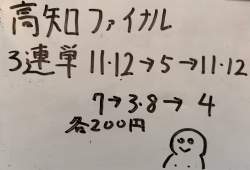 高知ファイナル
3連単 11・12→5→11・12
7→3・8→4
各200円